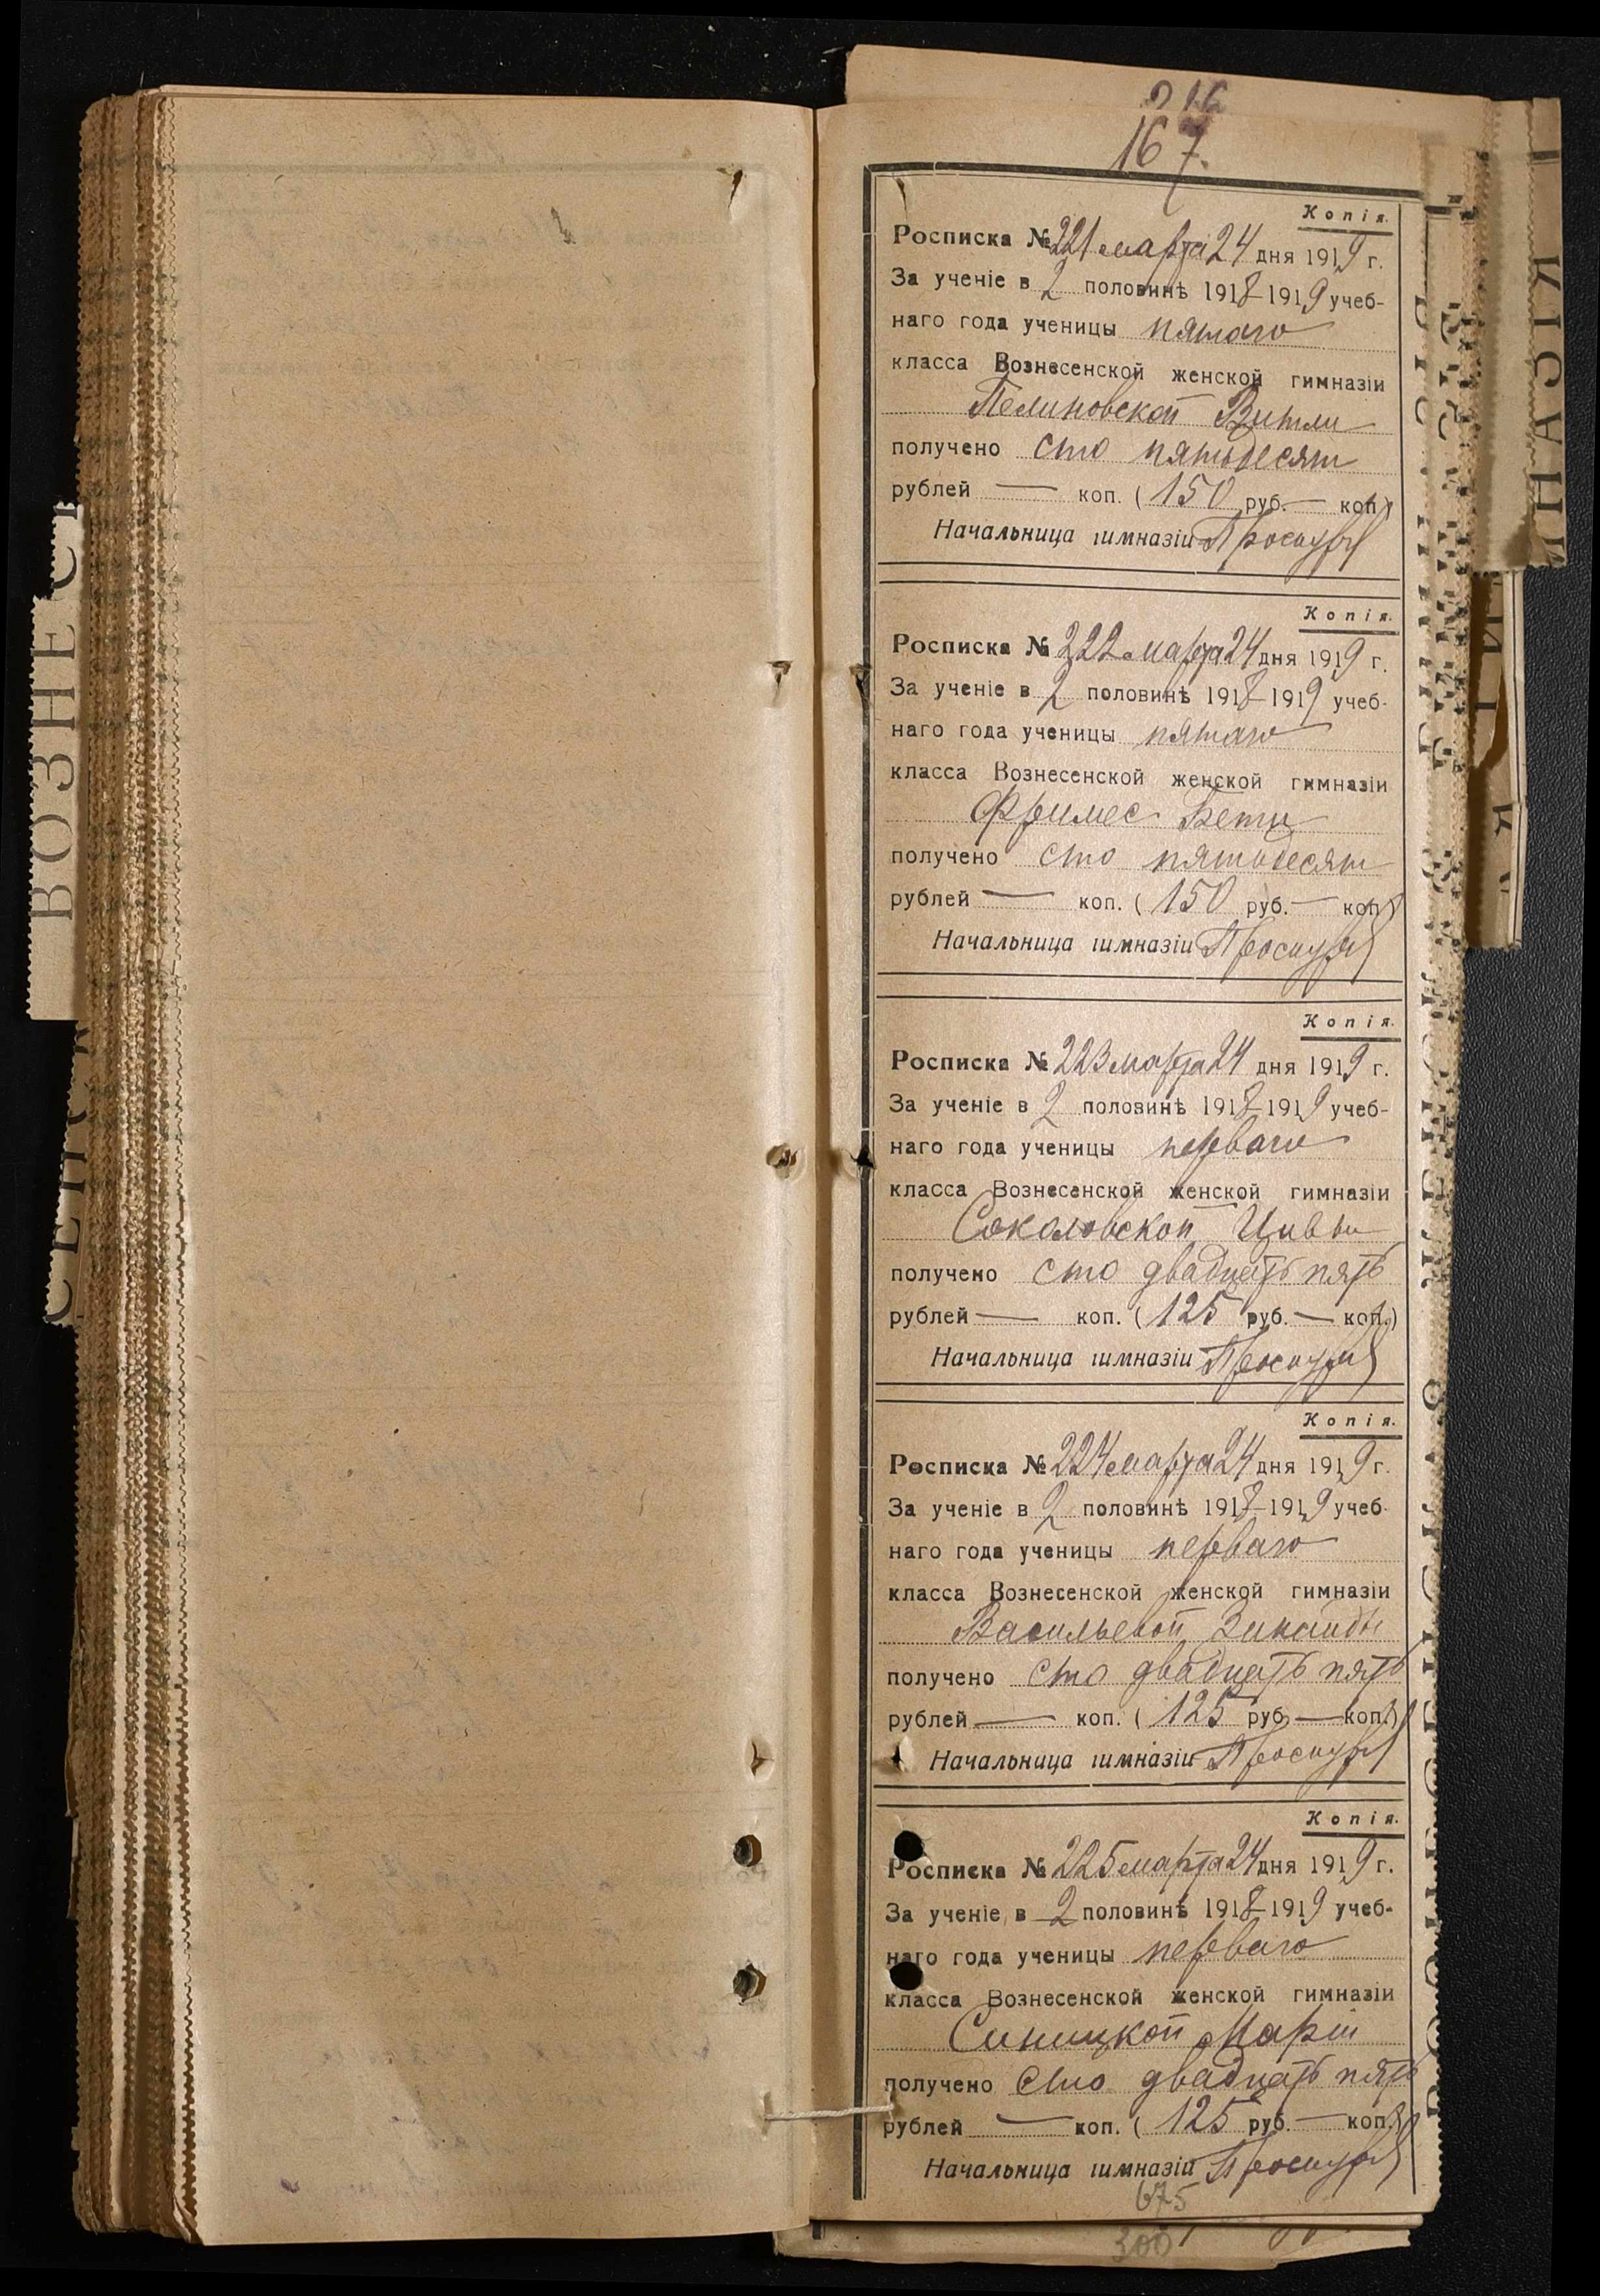 216
167.
Копія.
Росписка № 221 марта 24 дня 1919 г.
За ученіе в 2 половинѣ 1918-1919 учеб-
наго года ученицы пятаго
класса Вознесенской женской гимназіи
Пелиновской Витли
получено сто пятьдесят
рублей — коп. (150 руб. — коп.)
Начальница гимназіи
Копія.
Росписка № 222 марта 24 дня 1919 г.
За ученіе в 2 половинѣ 1918-1919 учеб-
наго года ученицы пятаго
класса Вознесенской женской гимназіи
Фримес Бети
получено сто пятьдесят
рублей — коп. (150 руб. — коп.)
Начальница гимназіи
Копія.
Росписка № 223 марта 24 дня 1919 г.
За ученіе в 2 половинѣ 1918-1919 учеб-
наго года ученицы перваго
класса Вознесенской женской гимназіи
Соколовской Цивьи
получено сто двадцать пять
рублей — коп. (125 руб. — коп.)
Начальница гимназіи
Копія.
Росписка № 224 марта 24 дня 1919 г.
За ученіе в 2 половинѣ 1918-1919 учеб-
наго года ученицы перваго
класса Вознесенской женской гимназіи
Васильевой Зинаиды
получено сто двадцать пять
рублей — коп. (125 руб. — коп.)
Начальница гимназіи
Копія.
Росписка № 225 марта 24 дня 1919 г.
За ученіе в 2 половинѣ 1918-1919 учеб-
наго года ученицы перваго
класса Вознесенской женской гимназіи
Синицкой Маріи
получено сто двадцать пять
рублей — коп. (125 руб. — коп.)
Начальница гимназіи
675
300
ВОЗНЕС